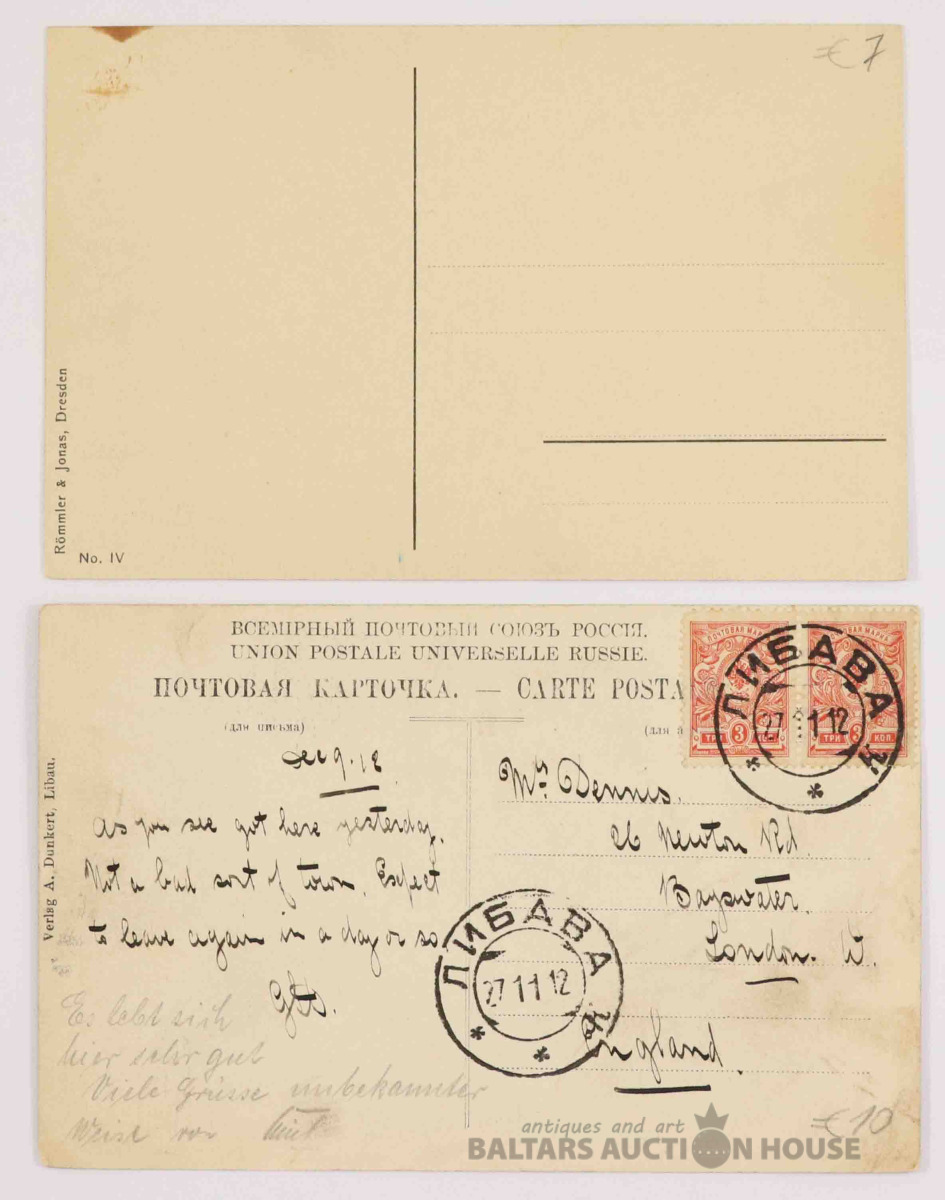 € 7
Römmler & Jonas, Dresden
No. IV
ВСЕМІРНЫЙ ПОЧТОВЫЙ СОЮЗЪ РОССІЯ.
UNION POSTALE UNIVERSELLE RUSSIE.
ПОЧТОВАЯ КАРТОЧКА. — CARTE POSTA
(для письма)
(для а
ПОЧТОВАЯ МАРК
ПОЧТОВАЯ МАРКА
ТРИ 3 КОП.
ТРИ 3 КОП.
ЛИБАВА
27 11 12
Verlag A. Dunkert, Libau.
Dec 9. 12
As you see got here yesterday.
Not a bad sort of town. Expect
to leave again in a day or so
Mrs Dennis.
26 Newton Rd.
Bayswater.
London. W.
England.
ЛИБАВА
27 11 12
Es lebt sich
hier sehr gut
Viele Grüsse unbekannter
Weise von
€ 10
antiques and art
BALTARS AUCTION HOUSE